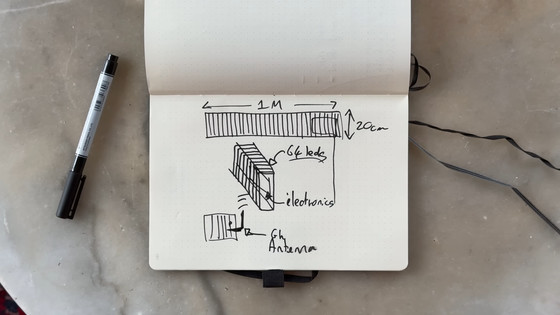 1M
20cm
64 leds
electronics
Antenna